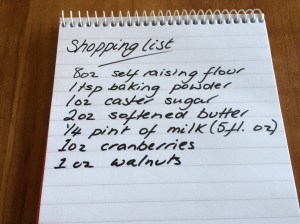 Shopping list
8oz self raising flour
1 tsp baking powder
1oz caster sugar
2oz softened butter
1/4 pint of milk (5 fl. oz)
1oz cranberries
1 oz walnuts